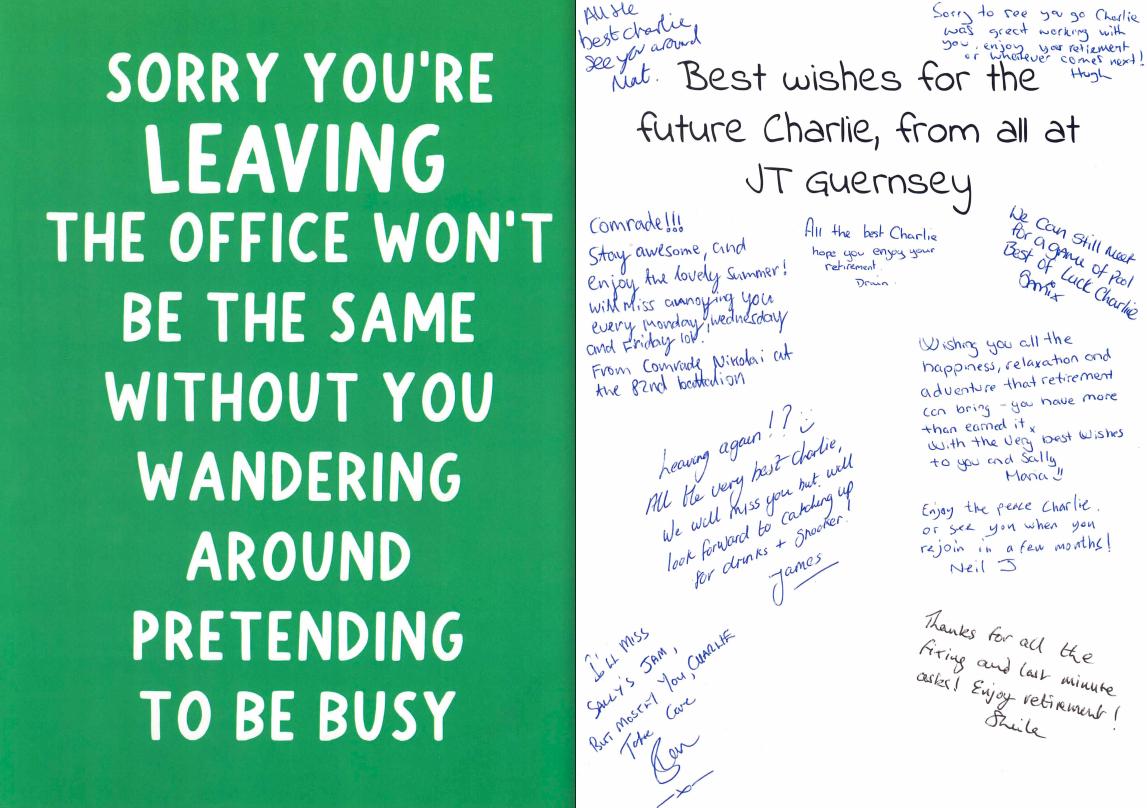 SORRY YOU'RE
LEAVING
THE OFFICE WON'T
BE THE SAME
WITHOUT YOU
WANDERING
AROUND
PRETENDING
TO BE BUSY
All the
best charlie
see you around
Mat.
Sorry to see you go Charlie
was great working with
you, enjoy your retiement
or whatever comes next!
Hugh
Best wishes for the
future Charlie, from all at
JT Guernsey
Comrade!!!
Stay awesome, and
enjoy the lovely summer!
will Miss annoying you
every monday, wednesday
and Friday lol.
From Comrade Nikolai at
the 82nd battalion
All the best Charlie
hope you enjoy your
retirement.
We can still meet
for a game of pool
Best of Luck Charlie
Wishing you all the
happiness, relaxation and
adventure that retirement
can bring - you have more
than earned it x
With the very best wishes
to you and Sally
Maria
Leaving again!?
All the very best Charlie,
we will miss you but will
look forward to catching up
for drinks + snooker!
James
Enjoy the peace Charlie.
or see you when you
rejoin in a few months!
Neil J
I'LL MISS
SALLY'S JAM,
BUT MOSTLY YOU, CHARLIE
Take Care
Ben
x
Thanks for all the
fixing and last minute
asks! Enjoy retirement!
Sheila